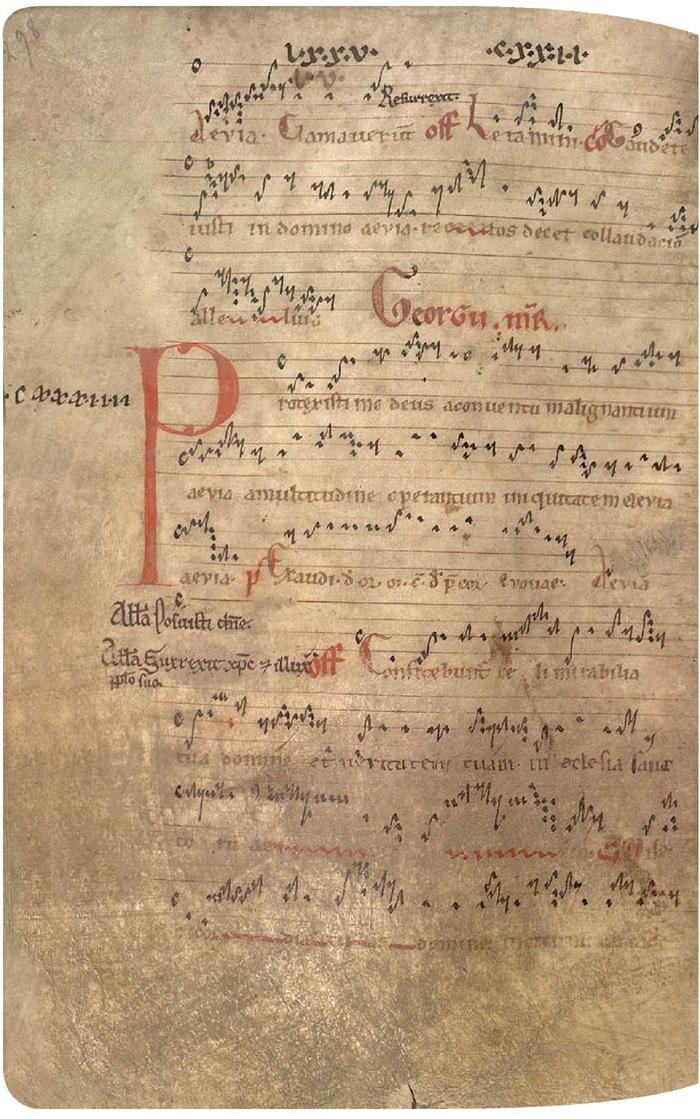 298
l.x.x.v. .c.x.x.i.i.
Resurrexit.
aevia. Clamaverūt off Letamini cō Gaudete
iusti in domino aevia. rectos decet collaudatio
alleluia Georgii. m̄R.
.c xxxiiii
Protexisti me deus aconventu malignantium
aevia amultitudine operantium iniquitatem aevia
aevia. p̄ Exaudi. d̄ or. evovae. aevia
Alla Posuisti dn̄e.
Alla Surrexit xp̄c ⁊ illux off Confitebunt ce li mirabilia
pplo suo.
tua domine et veritatem tuam. in eclesia sanc
to tū ae
domine